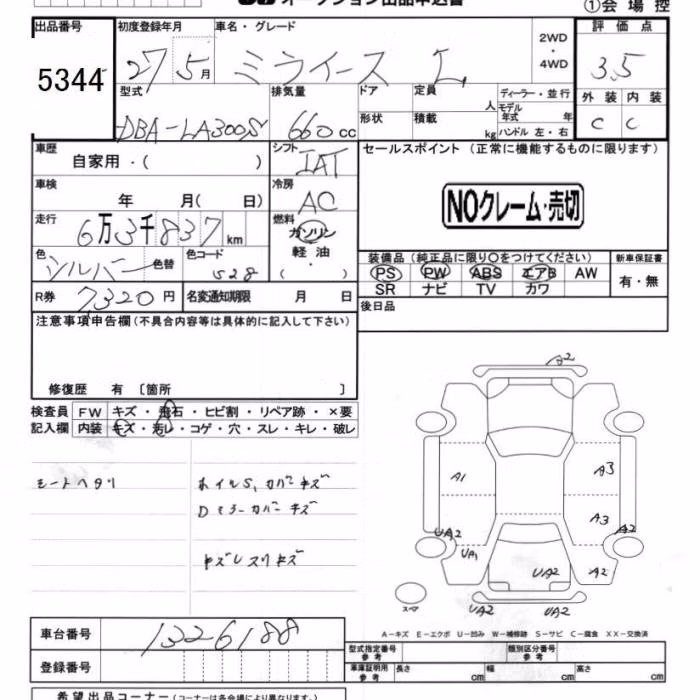 オークション出品申込書 ①会場控
出品番号 初度登録年月 車名・グレード 評価点
5344 27 5月 ミライース L 2WD・4WD 3.5
型式 排気量 ドア 定員 人 ディーラー・並行
DBA-LA300S 660cc 形状 積載 kg モデル年式 年式 ハンドル 左・右
外装 内装
C C
車歴 自家用・( ) シフト IAT セールスポイント (正常に機能するものに限ります)
車検 年 月( 日) 冷房 AC NOクレーム・売切
走行 6万3千837km 燃料 ガソリン
色 シルバー 色替 色コード S28 軽油・( )
装備品 (純正品に限り○をつけてください) 新車保証書
PS PW ABS エアB AW 有・無
SR ナビ TV カワ
R券 7320円 名変通知期限 月 日 後日品
注意事項申告欄 (不具合内容等は具体的に記入して下さい)
修復歴 有 〔箇所 〕
検査員 FW キズ・飛石・ヒビ割・リペア跡・×要
記入欄 内装 キズ・汚レ・コゲ・穴・スレ・キレ・破レ
シートヘタリ ホイルS,カバーキズ
Dミラーカバーキズ
A2
A1 A3
A3
UA2 A2
UA1 UA2 A2
スペア UA2 UA2
A-キズ E-エクボ U-凹み W-補修跡 S-サビ C-腐食 XX-交換済
車台番号 1326188
登録番号
型式指定番号 参考 類別区分番号 参考
車庫証明用 参考 長さ cm 幅 cm 高さ cm
希望出品コーナー (コーナーは各会場により異なります。)